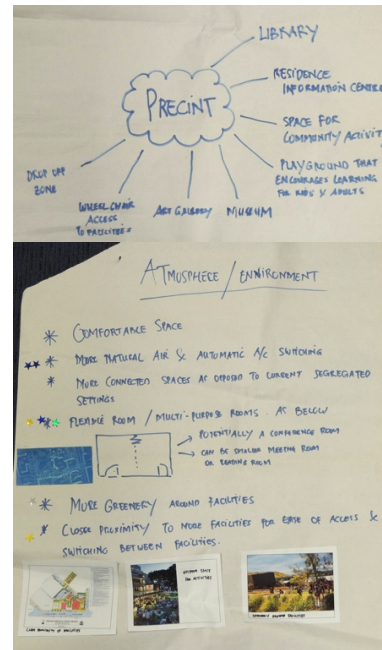 LIBRARY
RESIDENCE
INFORMATION CENTRE
PRECINT
SPACE FOR
COMMUNITY ACTIVIT
PLAYGROUND THAT
ENCOURAGES LEARNING
FOR KIDS & ADULTS
DROP OFF
ZONE
WHEEL CHAIR
ACCESS
TO FACILITIES
ART GALLERY
MUSEUM
ATMOSPHERE / ENVIRONMENT
* COMFORTABLE SPACE
* MORE NATURAL AIR & AUTOMATIC A/C SWITCHING
* MORE CONNECTED SPACES AS OPPOSED TO CURRENT SEGREGATED
SETTINGS
* FLEXIBLE ROOM / MULTI-PURPOSE ROOMS. AS BELOW
POTENTIALLY A CONFERENCE ROOM
CAN BE SMALLER MEETING ROOM
OR READING ROOM
* MORE GREENERY AROUND FACILITIES
* CLOSER PROXIMITY TO MORE FACILITIES FOR EASE OF ACCESS &
SWITCHING BETWEEN FACILITIES.
FOR ACTIVITIES